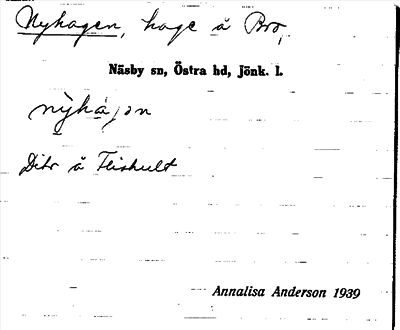 Nyhagen, hage å Bro,
Näsby sn, Östra hd, Jönk. l.
nỳhàjen
Dito å Fliskult
Annalisa Anderson 1939